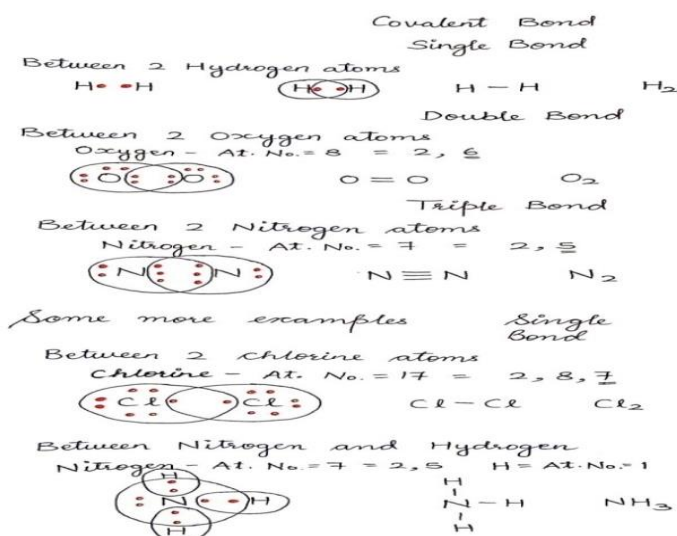 Covalent Bond
Single Bond
Between 2 Hydrogen atoms
H •  • H H H H – H H₂
Double Bond
Between 2 Oxygen atoms
Oxygen – At. No. = 8 = 2, 6
O O O = O O₂
Triple Bond
Between 2 Nitrogen atoms
Nitrogen – At. No. = 7 = 2, 5
N N N ≡ N N₂
Some more examples Single
Bond
Between 2 chlorine atoms
Chlorine – At. No. = 17 = 2, 8, 7
Cl Cl Cl – Cl Cl₂
Between Nitrogen and Hydrogen
Nitrogen – At. No. = 7 = 2, 5 H = At. No. = 1
H H
N H N – H NH₃
H H